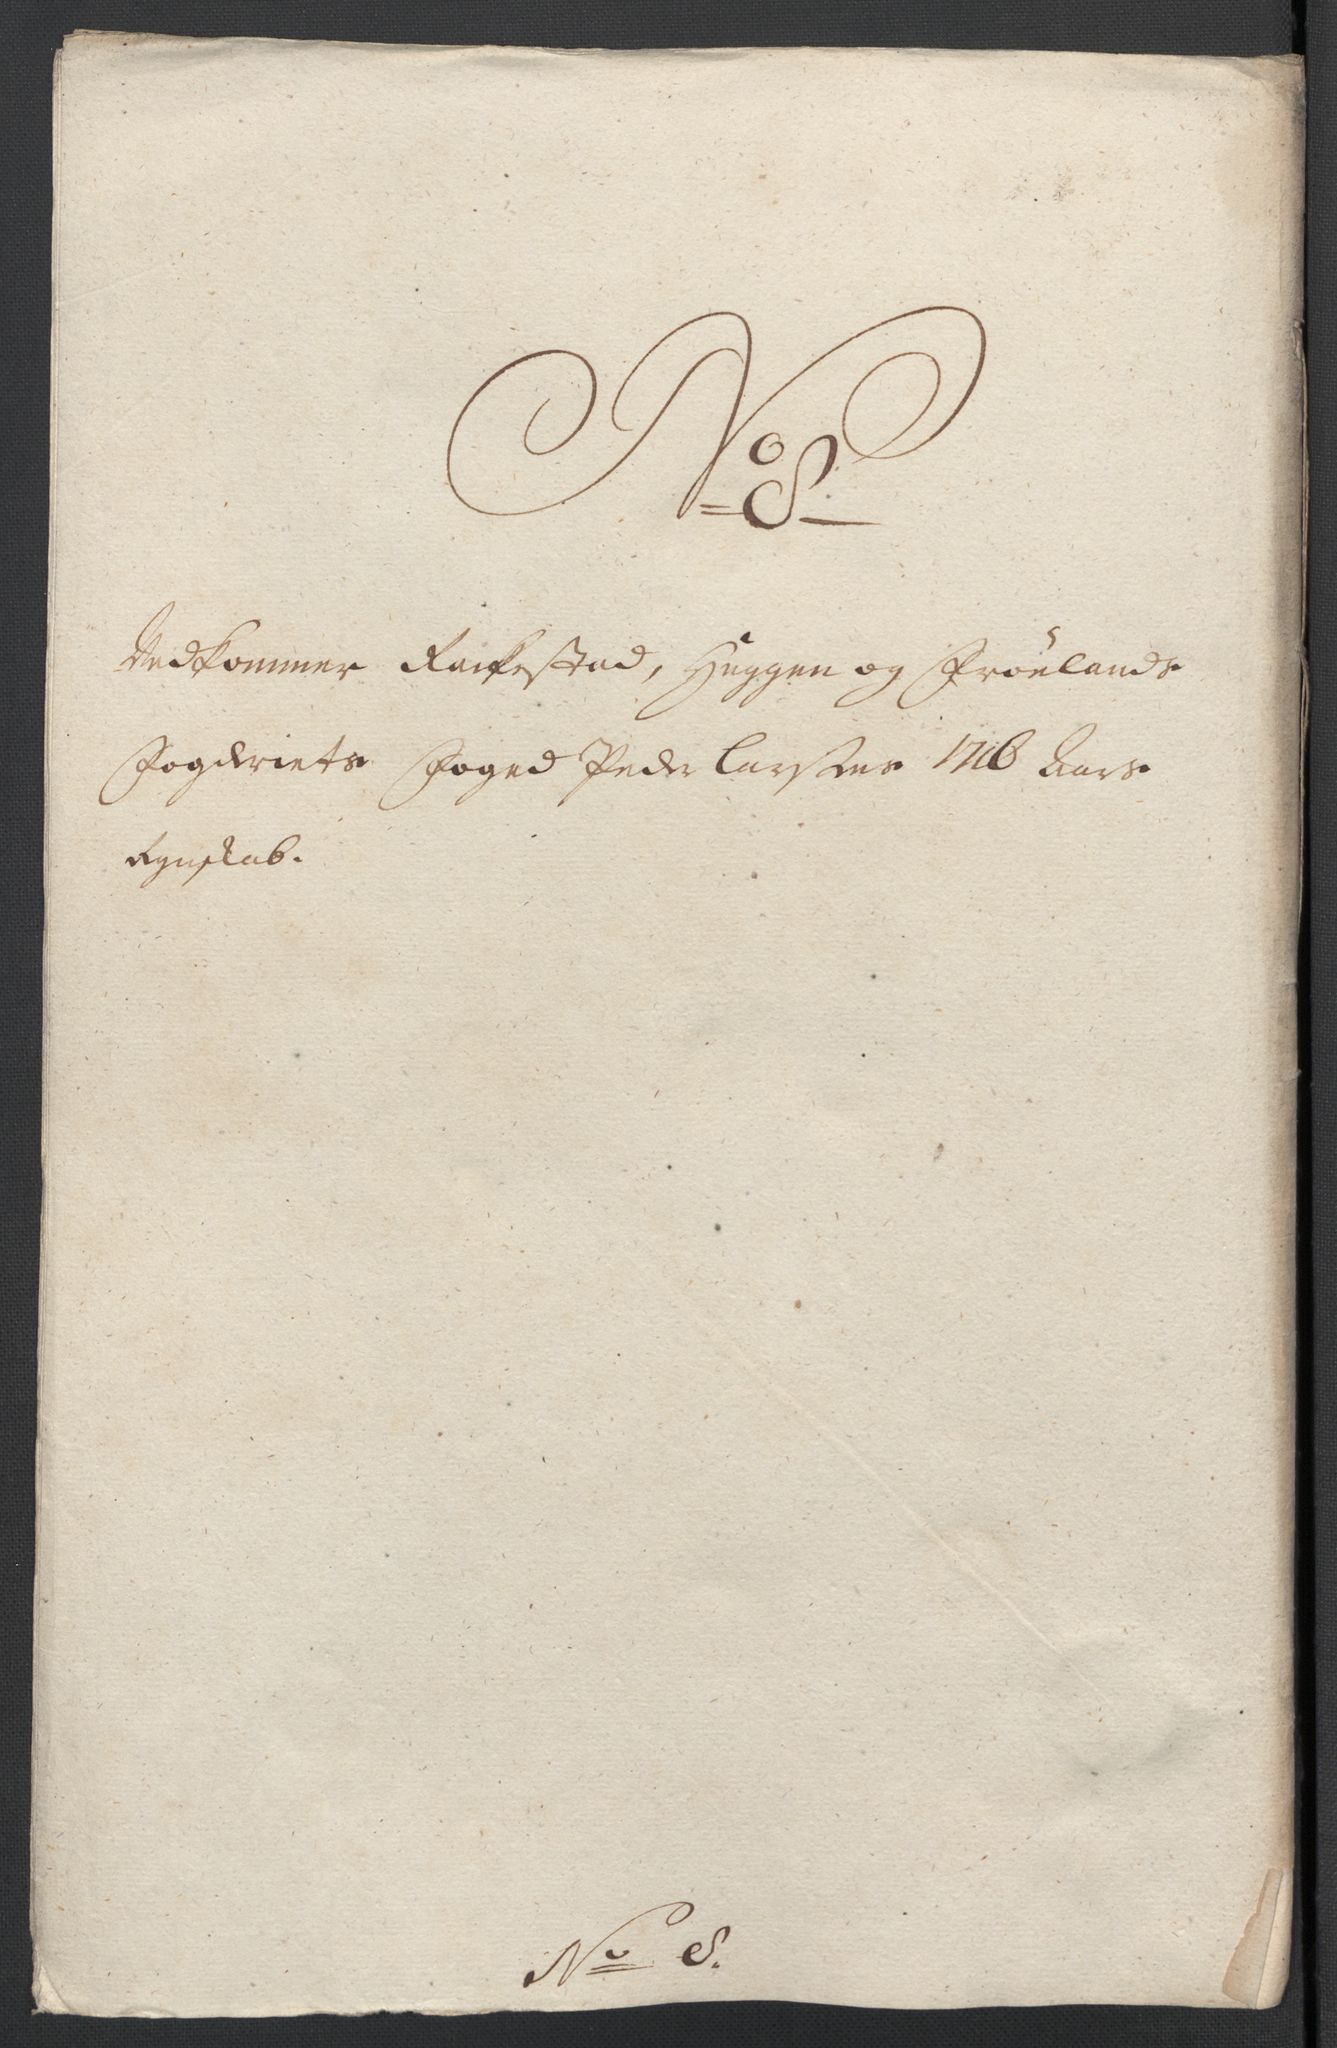 No 8
Vedkommer Rackestad, Heggen og Frölands
Fogderiets Foged Peder Larsens 1716 Aars
Regnskab.
No 8.